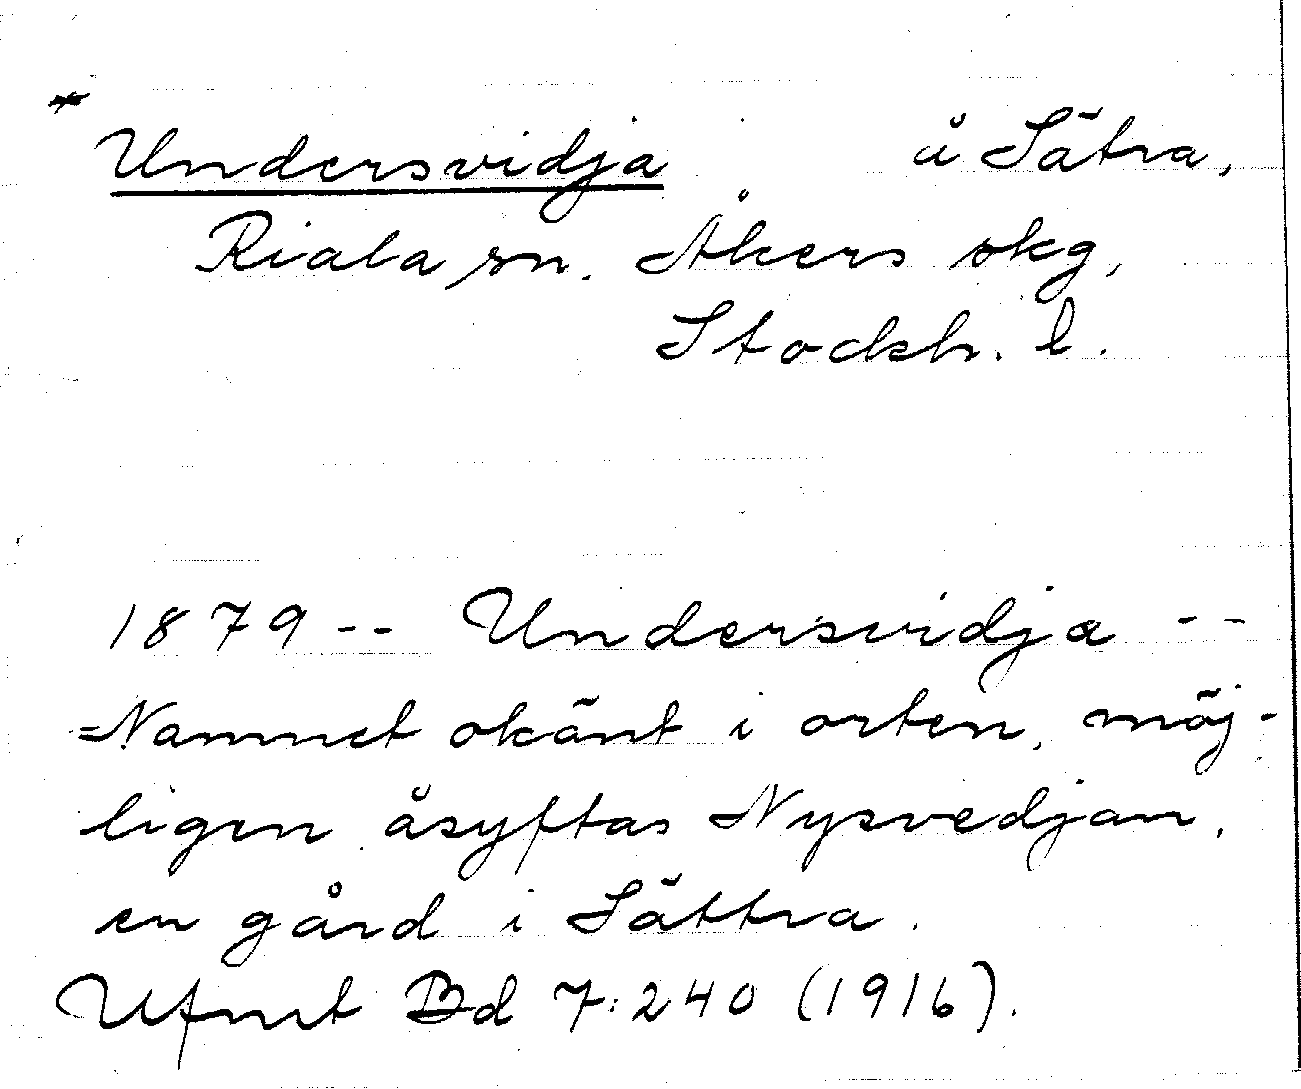 * Undersvidja å Sätra,
Riala sn. Åkers skg,
Stockh. l.
1879 -- Undersvidja --
=Namnet okänt i orten, möj-
ligen åsyftas Nysvedjan,
en gård i Sättra.
Ufmt Bd 7:240 (1916).